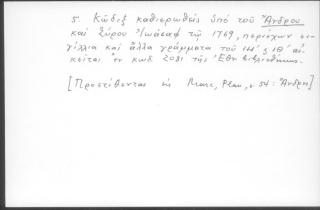 5. Κῶδιξ καθιερωθεὶς ὑπὸ τοῦ Ἄνδρου
καὶ Σύρου Ἰωάσαφ τῷ 1769, περιέχων σι-
γίλλια καὶ ἄλλα γράμματα τοῦ ΙΗ΄ ς ΙΘ΄ αἰ.
κεῖται ἐν κώδ 2081 τῆς Ἐθν βιβλιοθήκης.
[Προστίθενται εἰς 54: Ἄνδρος]